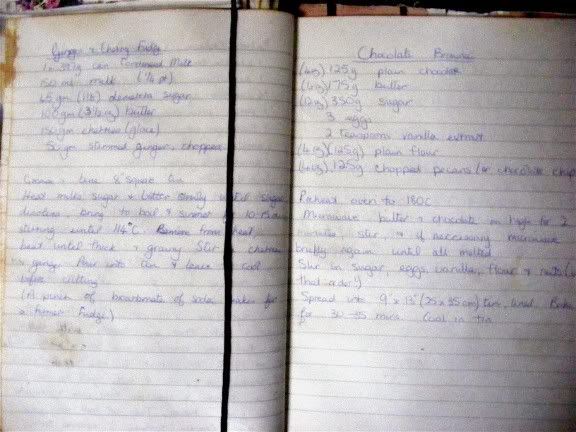 Ginger & Cherry Fudge
1 x 397g can Condensed Milk
150 ml milk (¼ pt)
45 gm (1lb) demerara sugar
100 gm (3½ oz) butter
cherries (glace)
50 gm stemmed ginger, chopped
Grease & line 8" square tin
Heat milks sugar & butter slowly until sugar
dissolves bring to boil & simmer for 10-15
stirring until 114°C. Remove from heat,
beat until thick & grainy. Stir in cherries
& ginger. Pour into tin & leave to cool
before cutting.
(A pinch of bicarbonate of soda makes for
a firmer fudge)
Chocolate Brownie
(4oz) 125g plain chocolate
175g butter
(12oz) 350g sugar
3 eggs
2 teaspoons vanilla extract
(4oz) (125g) plain flour
(4oz) 125g chopped pecans (or chocolate chip
Preheat oven to 180C
Microwave butter & chocolate on high for 2
minutes, stir, & if necessary microwave
briefly again until all melted
Stir in sugar, eggs, vanilla, flour & nuts (in
that order!)
Spread into 9" x 13" (25 x 35 cm) tin, lined. Bake
for 30-35 mins. Cool in tin